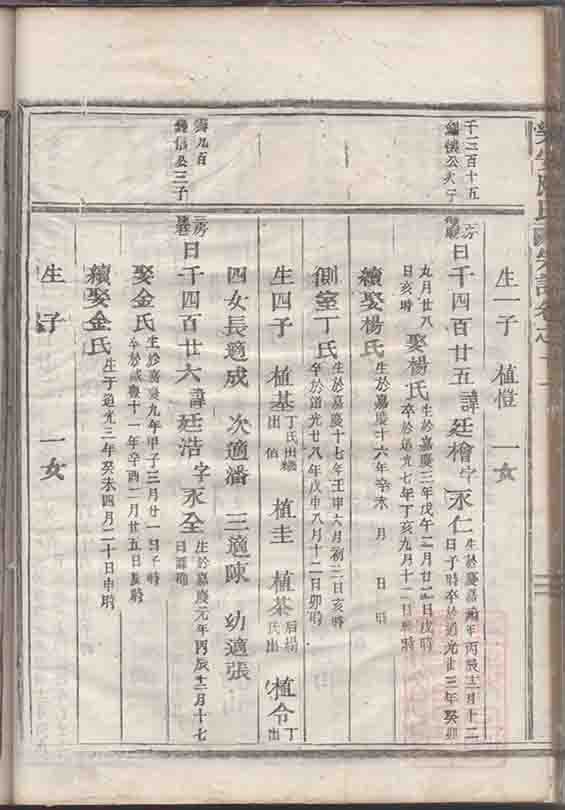 生一子 植愷 一女
千三百十五
日千四百廿五諱廷檜字永仁生於嘉慶元年丙辰十二月十二
日子時卒於道光廿三年癸卯
九月廿八
日亥時
娶楊氏生於嘉慶三年戊午二月廿二日戌時
卒於道光七年丁亥九月十一日 時
續娶楊氏生於嘉慶十六年辛未 月 日 時
側室丁氏生於嘉慶十七年壬申六月初三日亥時
卒於道光廿八年戊申八月十二日卯時
生四子 植基丁氏出 植圭 植棻后楊氏出 植令丁出
四女長適成 次適潘 三適陳 幼適張
九百
信公三子
房
日千四百廿六諱廷浩字永全生於嘉慶元年丙辰十二月十七
日
娶金氏生於嘉慶九年甲子三月廿一日子時
卒於咸豐十一年辛酉二月廿五日 時
續娶金氏生于道光三年癸未四月二十日申時
生 子 一女